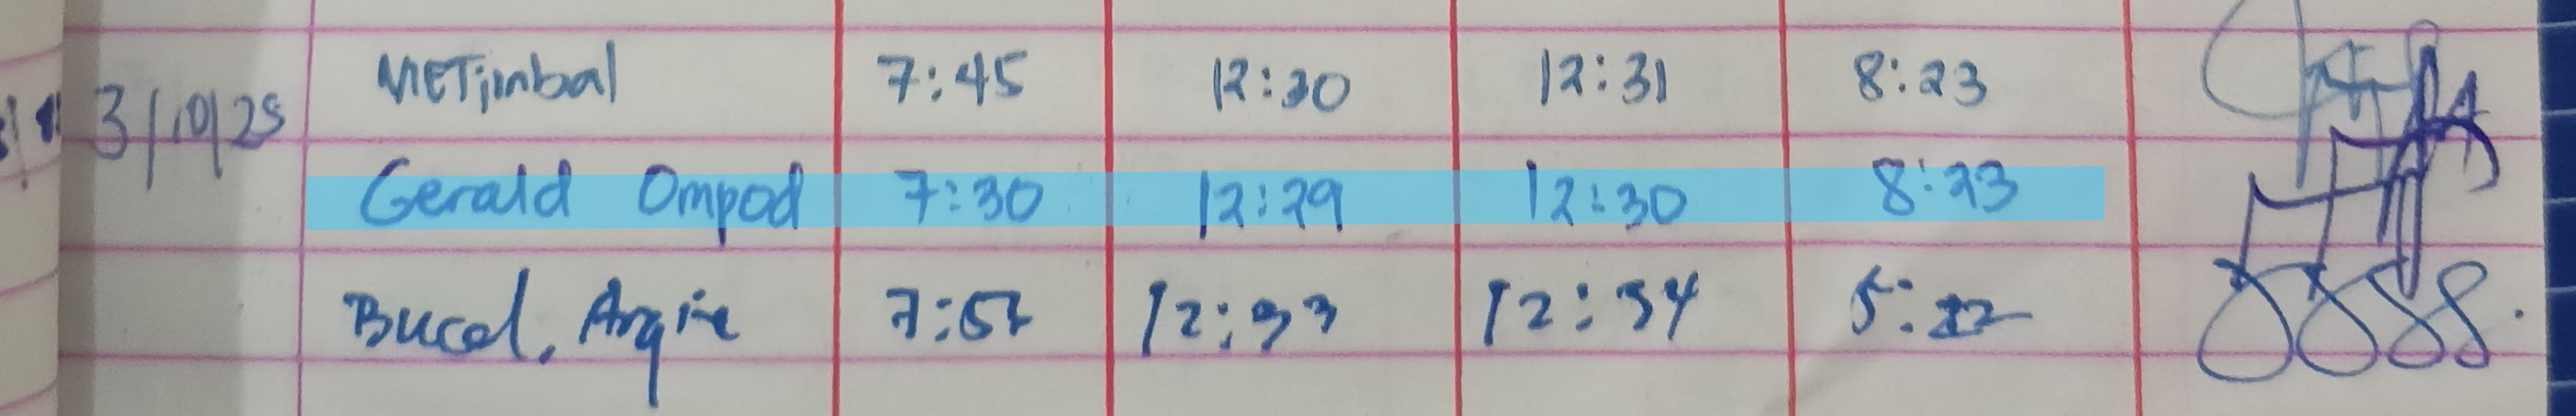 3/10/25 METimbal 7:45 12:30 12:31 8:23
Gerald Ompod 7:30 12:29 12:30 8:23
Bucol, Argie 7:57 12:33 12:34 5:22